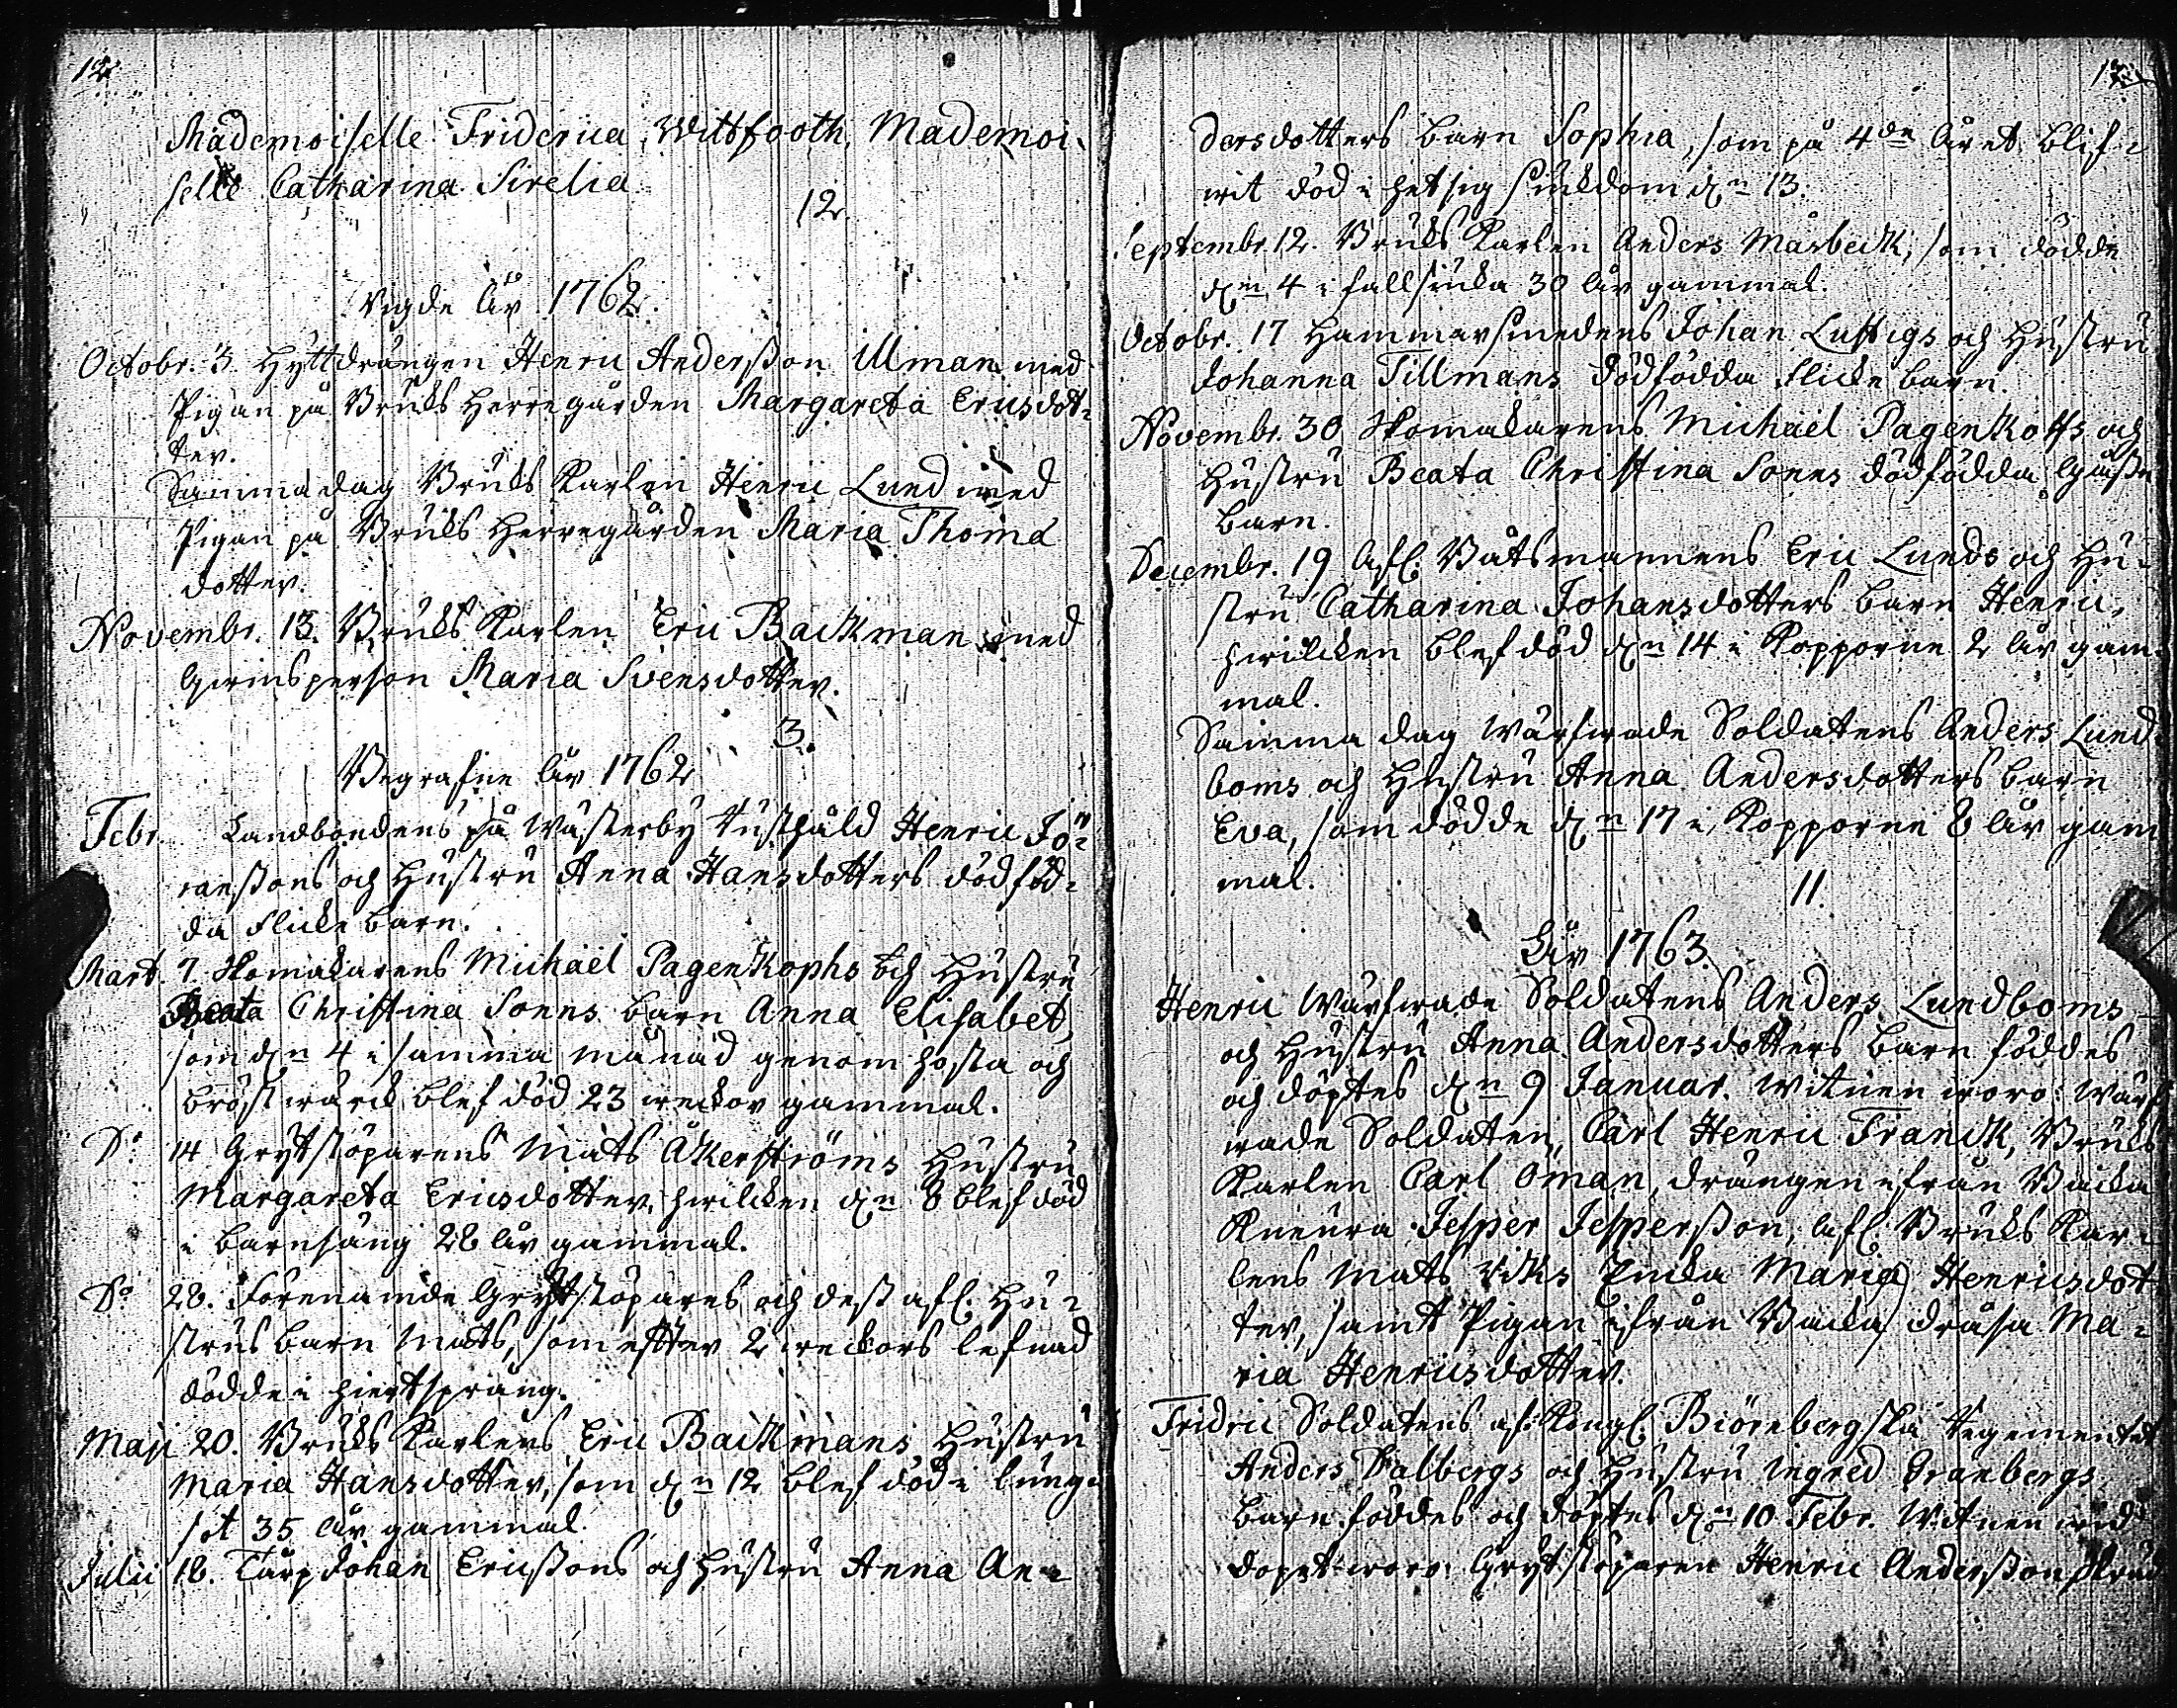 12
Mademoiselle Friderica Wittfooth, Mademoi-
selle Catharina Sirelia
12
Vigde åhr 1762.
Octobr. 3 Hyttdrängen Henric Andersson Ulman med
Pigan på Bruks Herregården Margareta Ericsdot-
ter.
Samma dag Bruks Karlen Henric Lund med
Pigan på Bruks Herregården Maria Thomæ
dotter.
Novembr. 13. Bruks Karlen Eric Backman med
Qwinsperson Maria Svensdotter.
3.
Begrafne åhr 1762
Febr. Landbondens på Wästerby Henric Jö-
ranssons och Hustru Anna Hansdotters dödföd-
da flicke barn.
Mart. 7. Skomakarens Michaël Pagenkophs och Hustru
Beata Christina Sonns barn Anna Elisabet,
som d:n 4 i samma månad genom hosta och
bröstwärck blef död 23 weckor gammal.
D:o 14 Grytstöparens Mats Åkerströms Hustru
Margareta Ericsdotter, hwilcken d:n 8 blef död
i barnsäng 28 åhr gammal.
D:o 28. Förenämde Grytstöpares och dess afl. Hu-
strus barn Mats, som efter 2 weckors lefnad
dödde i hiertsprång.
Maji 20. Bruks Karlens Eric Backmans Hustru
Maria Hansdotter, som d:n 12 blef död i lung-
sot 35 åhr gammal.
Julii 18. Torp Johan Ericssons och Hustru Anna An-
13
dersdotters barn Sophia, som på 4de året blif-
wit död i hetsig siukdom d:n 13.
Septembr. 12. Bruks Karlen Anders Mårbeck, som dödde
d:n 4 i fallsiuka 30 åhr gammal.
Octobr. 17 Hammarsmedens Johan Lustigs och Hustru
Johanna Tillmans dödfödda flicke barn.
Novembr. 30 Skomakarens Michaël Pagenkoffs och
Hustru Beata Christina Sonns dödfödda gåsse
barn.
Decembr. 19 Afl. Båtsmannens Eric Lunds och Hu-
stru Catharina Johansdotters barn Henric,
hwilcken blef död d:n 14 i Kopporne 2 åhr gam-
mal.
Samma dag Wärfwade Soldatens Anders Lund-
boms och Hustru Anna Andersdotters barn
Eva, som dödde d:n 17 i Kopporne 8 åhr gam
mal.
11.
Åhr 1763.
Henric Wärfwade Soldatens Anders Lundboms
och Hustru Anna Andersdotters barn föddes
och döptes d:n 9 Januar. Witnen woro: Wärf
wade Soldaten Carl Henric Franck, Bruks
Karlen Carl Öman, drängen ifrån Backa
Jesper Jespersson, Afl. Bruks Kar-
lens Mats Viks Encka Maria Henricsdot
ter, samt Pigan ifrån Backa Ma-
ria Henricsdotter.
Fridric Soldatens af Kongl. Biörnebergska Regementet
Anders Dalbergs och Hustru Ingred Granbergs
barn föddes och döptes d:n 10 Febr. Witnen wid
dopet woro: Grytstöparen Henric Andersson